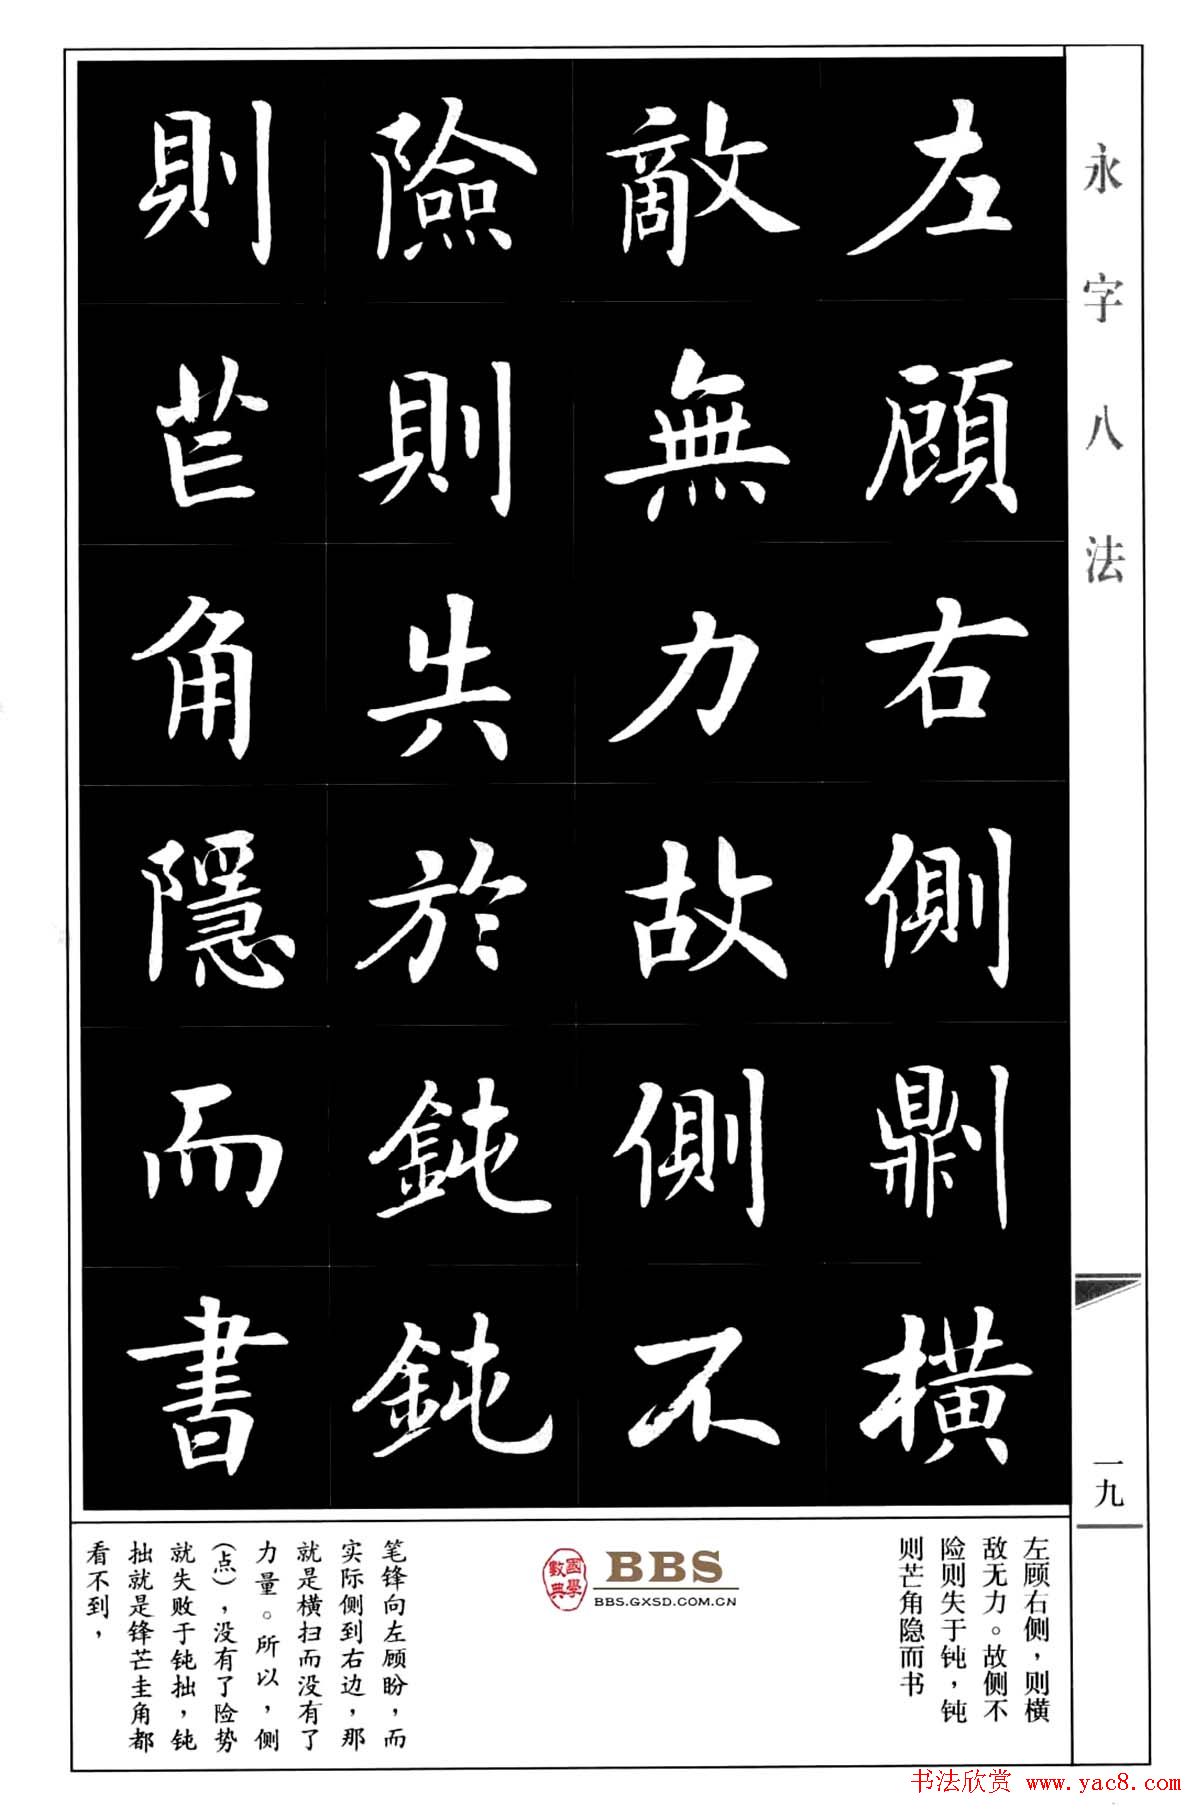 永字八法
左顧右側鼎橫
敵無力故側不
險則失於鈍鈍
則芒角隱而書
一九
左顾右侧，则横
敌无力。故侧不
险则失于钝，钝
则芒角隐而书
國學
數典
BBS
BBS.GXSD.COM.CN
笔锋向左顾盼，而
实际侧到右边，那
就是横扫而没有了
力量。所以，侧
(点)，没有了险势
就失败于钝拙，钝
拙就是锋芒圭角都
看不到，
书法欣赏 www.yac8.com